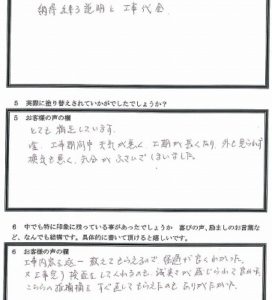 納得出来る説明と工事代金
5 実際に塗り替えされていかがでしたでしょうか？
5 お客様の声の欄
とても満足しています。
唯、工事期間中 天気が悪く、工期が長くなり、外も見られず
換気も悪く、気分がふさいでしまいました。
6 中でも特に印象に残っている事があったでしょうか 喜びの声、励ましのお言葉な
ど、なんでも結構です。具体的に書いて頂けると嬉しいです。
6 お客様の声の欄
工事内容を逐一教えてもらえるので 状況が良くわかった。
又工事毎に検査をしてくれるのも、誠実さが感じられて良かった。
こちらの指摘横を すぐ直してもらえたのも ありがたかった。